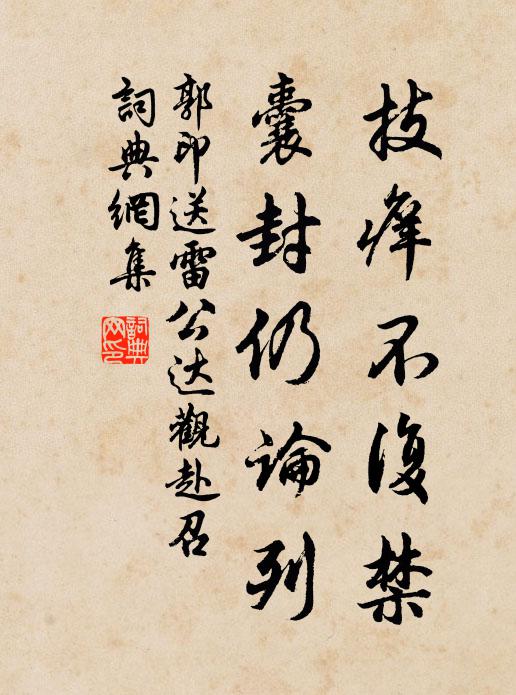 技癢不復禁
囊封仍論列
郭印送雷公达觀赴召
詞典網集
詞典网印